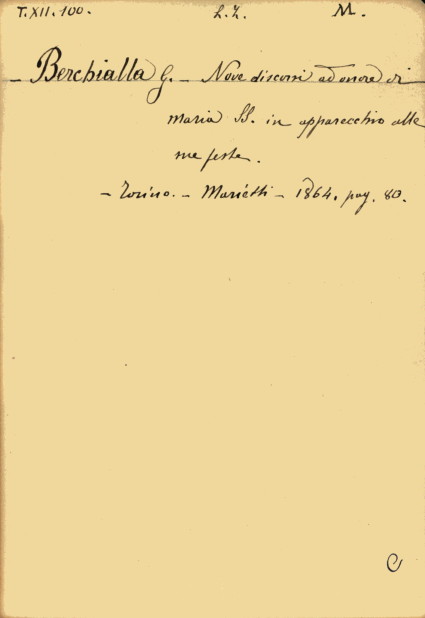 T.XII.100. L.Z. M.
- Berchialla G. - Nove discorsi ad onore di
maria SS. in apparecchio alle
sue feste.
- Torino. - Marietti - 1864. pag. 80.
C